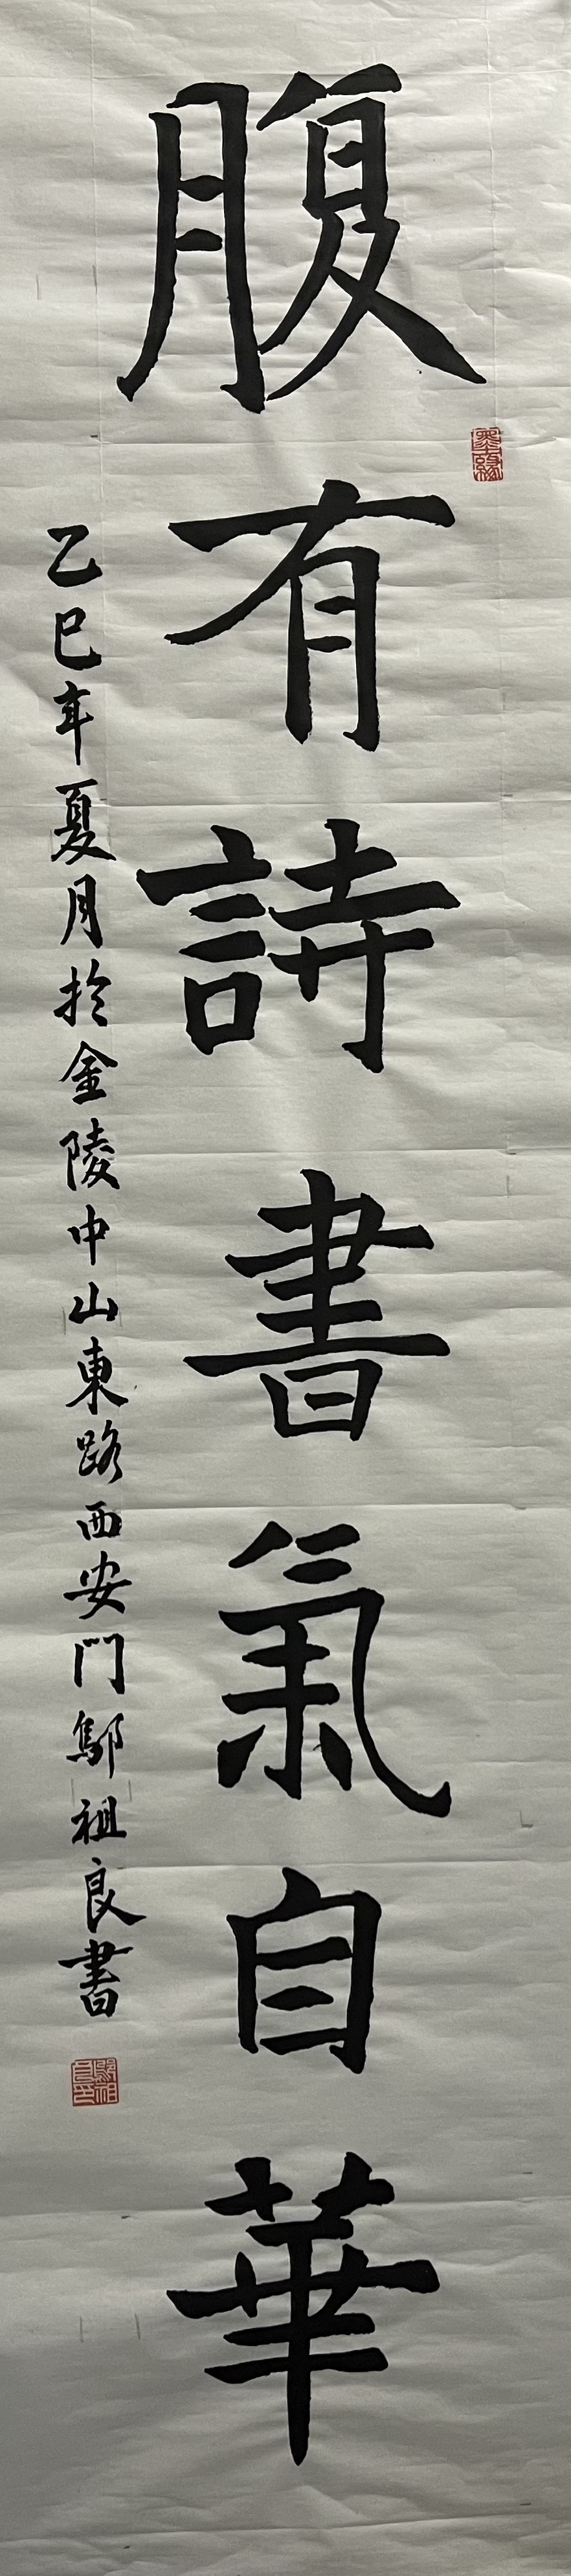 腹有詩書氣自華
乙巳年夏月於金陵中山東路西安門鄔祖良書